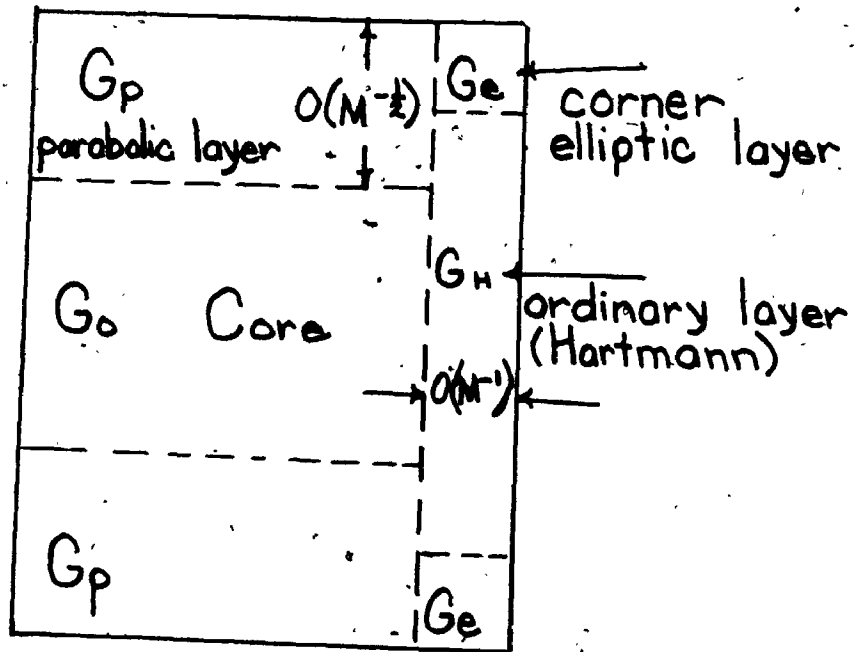 Gp
parabolic layer
O(M^-½)
Ge
corner
elliptic layer
Go Core
GH
ordinary layer
(Hartmann)
O(M^-1)
Gp
Ge